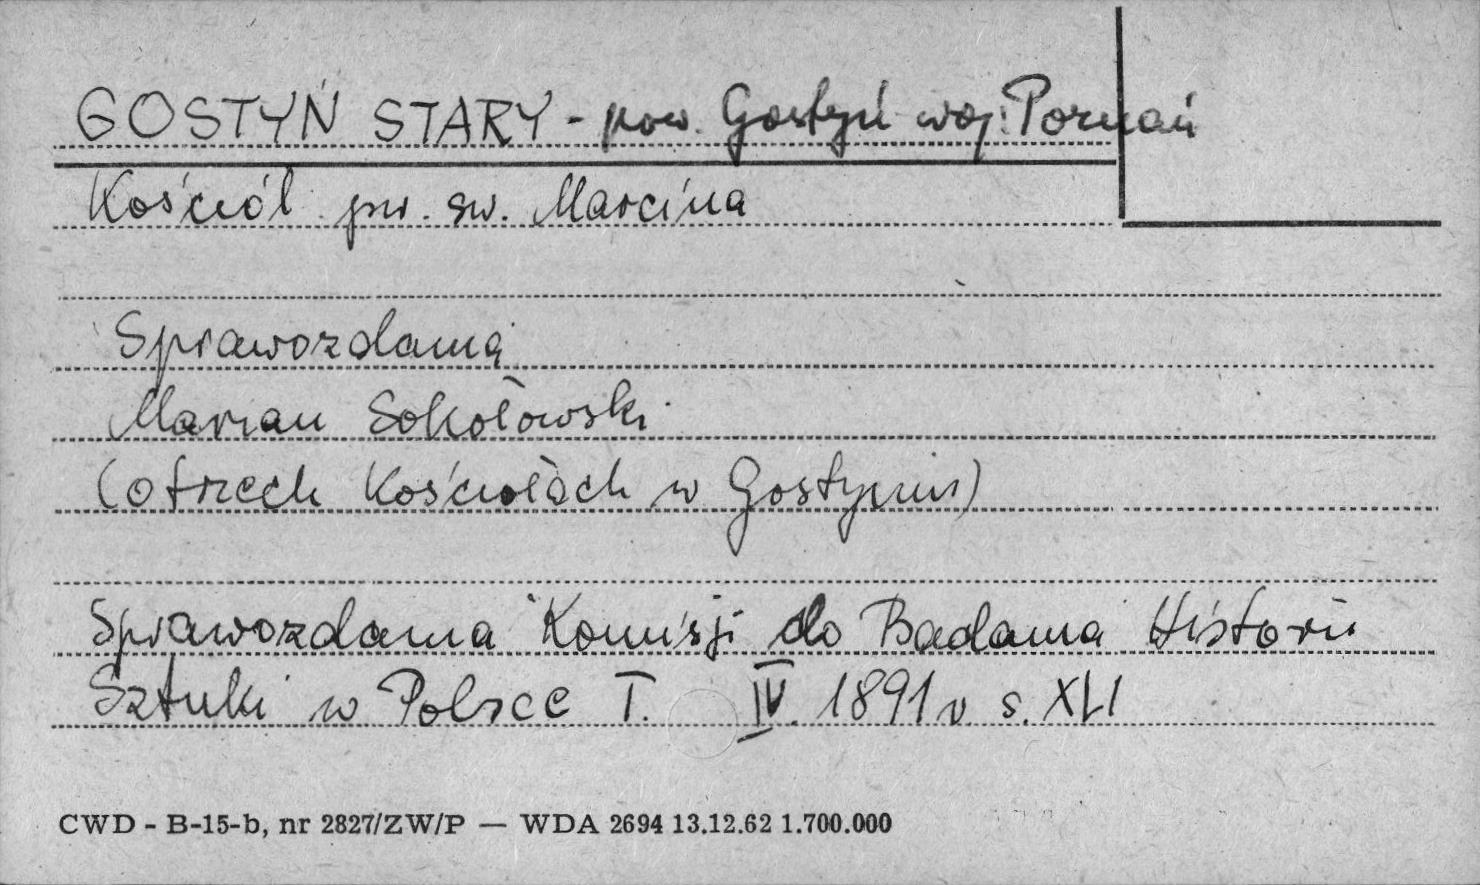 GOSTYŃ STARY - pow. Gostyń woj. Poznań
Kościół pw. św. Marcina
Sprawozdania
Marian Sokołowski
(o trzech Kościołach w Gostyniu)
Sprawozdania Komisji do Badania Historii
Sztuki w Polsce T. IV. 1891 r. s. XLI
CWD - B-15-b, nr 2827/ZW/P — WDA 2694 13.12.62 1.700.000